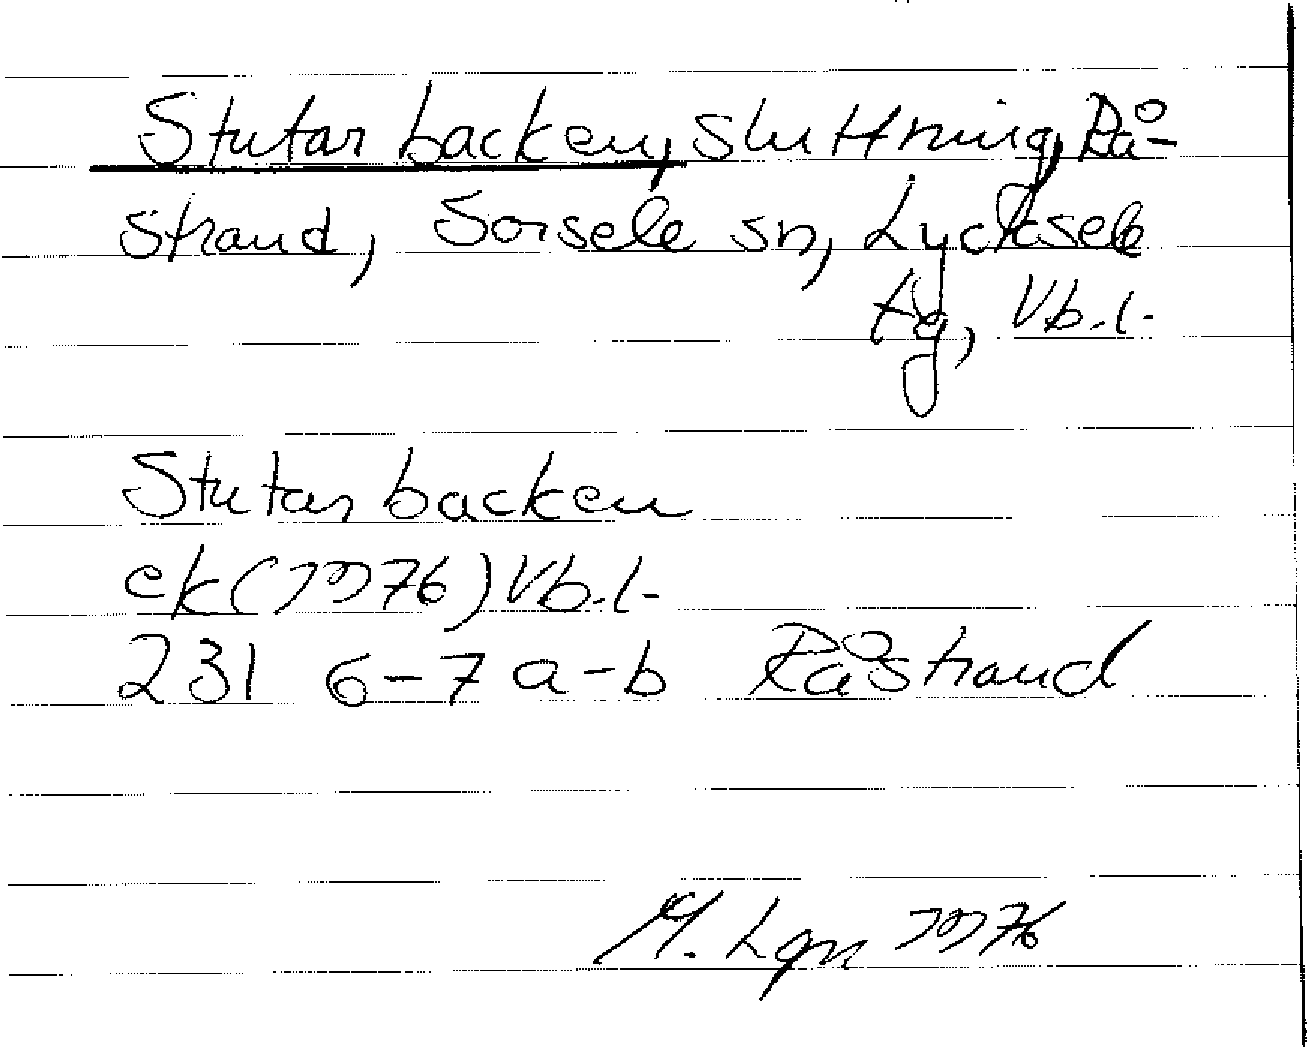 Stutarbacken, sluttning, Rå-
strand, Sorsele sn, Lycksele
tg, Vb.l.
Stutarbacken
ek (1976) Vb.l.
231 6-7 a-b Råstrand
M. Lgn 1976